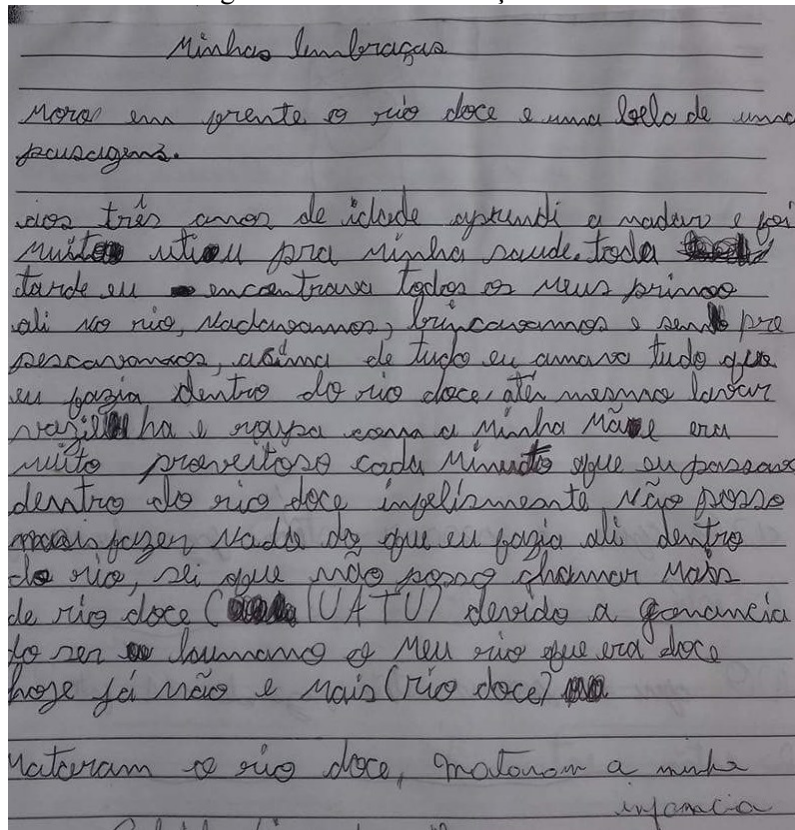 Minhas lembraças
Moro em frente o rio doce e uma bela de uma
pausagens.
aos três anos de idade aprendi a nadar e foi
muito utiu pra minha saude. toda
tarde eu encontrava todos os meus primos
ali no rio, Nadavamos, brincavamos e sempre
pescavamos, acima de tudo eu amava tudo que
eu fazia dentro do rio doce, atér mesmo lavar
vazilha e roupa com a minha mãe era
muito proveitoso cada minuto que eu passava
dentro do rio doce infelismente não posso
mais fazer nada do que eu fazia ali dentro
do rio, sei que não posso chamar mais
de rio doce (UATU) devido a ganancia
do ser humano o meu rio que era doce
hoje já não e mais (rio doce)
Mataram o rio doce, mataram a minha
infancia